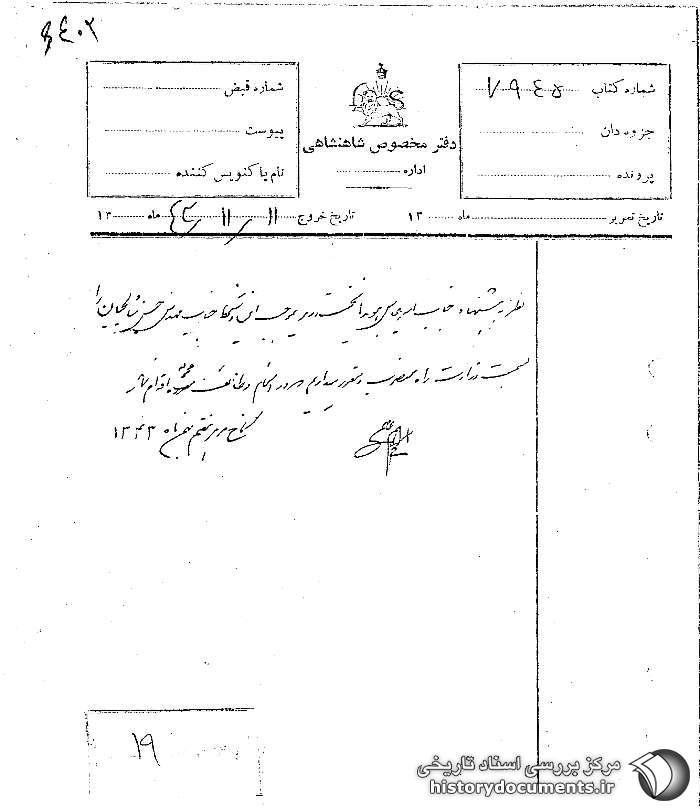 ۸۴۰۲
شماره کتاب ۷۹۴۵
جزوه دان
پرونده
دفتر مخصوص شاهنشاهی
اداره
شماره قبض
پیوست
نام پاکنویس کننده
تاریخ تحریر ماه ۱۳
تاریخ خروج ۱۱ / ۱۱ / ۴۳ ماه ۱۳
نظر به پیشنهاد جناب امیرعباس هویدا نخست وزیر بموجب این دستخط جناب مهندس حسن شالچیان را
بسمت وزارت راه منصوب و مقرر میداریم در انجام وظائف محوله اقدام نماید
کاخ مرمر بهمن ماه ۱۳۴۳
۱۹
مرکز بررسی اسناد تاریخی
historydocuments.ir